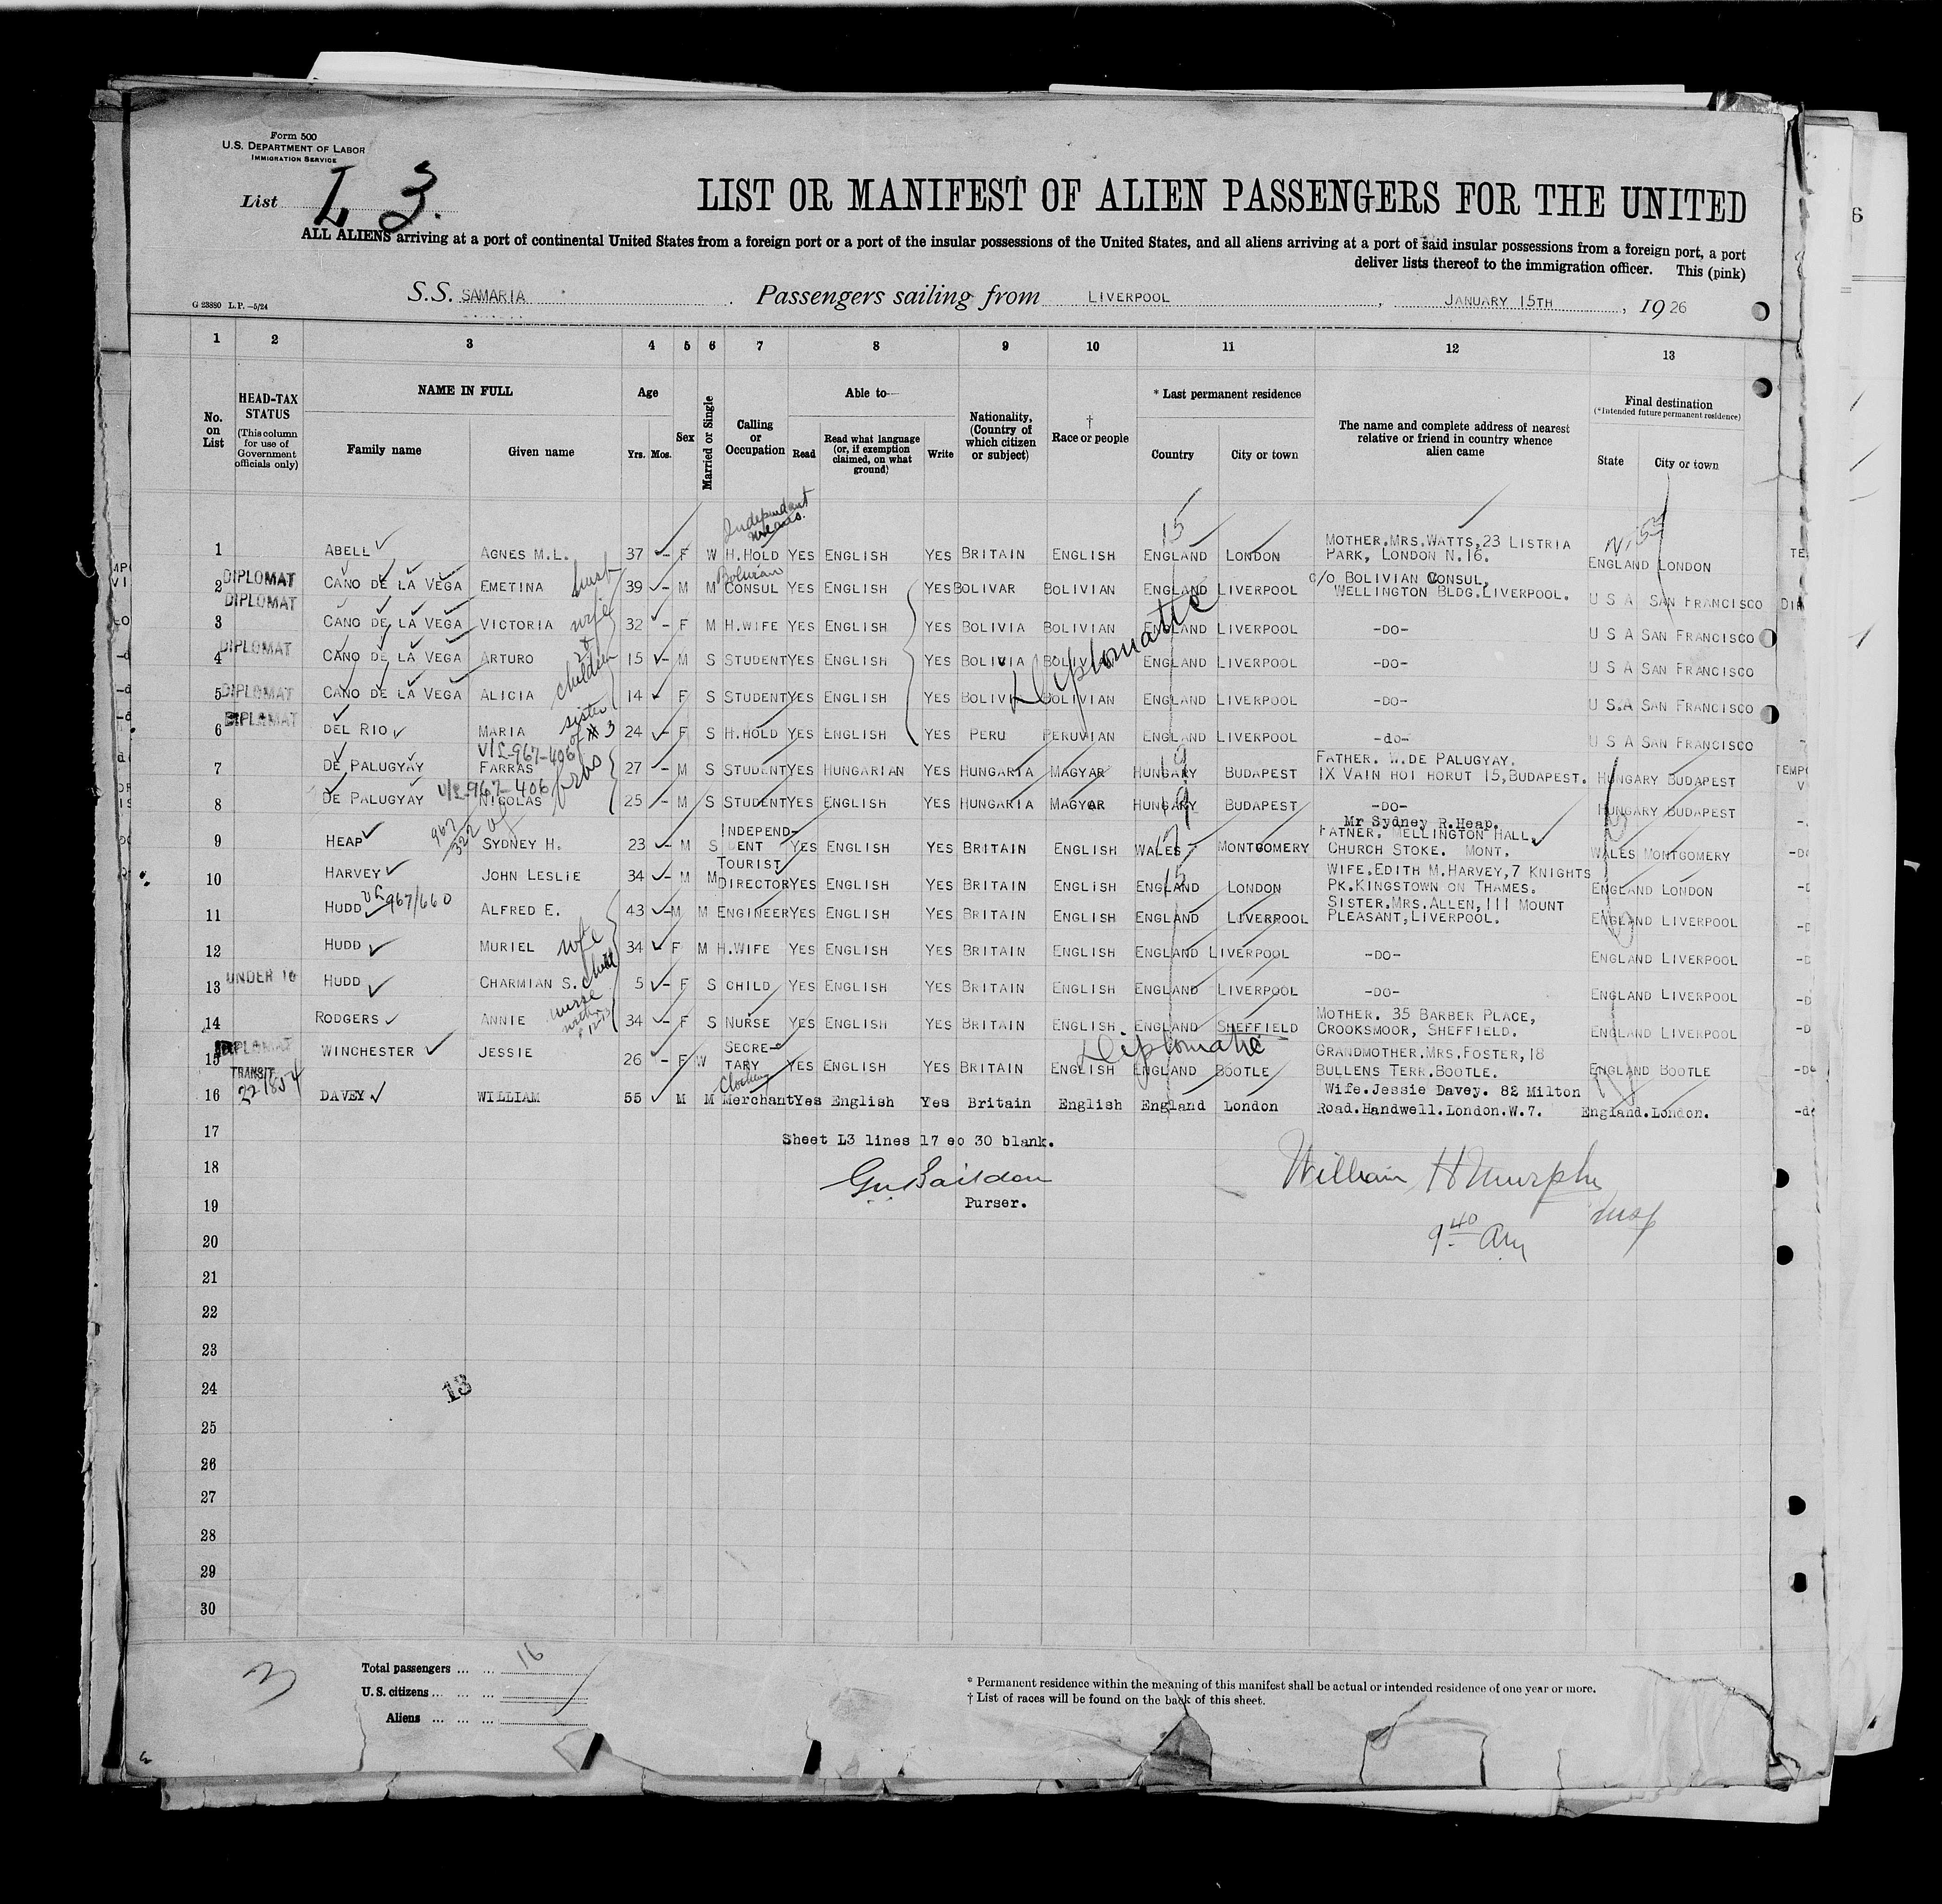 Form 500
U.S. DEPARTMENT OF LABOR
IMMIGRATION SERVICE
List L 3.
LIST OR MANIFEST OF ALIEN PASSENGERS FOR THE UNITED
ALL ALIENS arriving at a port of continental United States from a foreign port or a port of the insular possessions of the United States, and all aliens arriving at a port of said insular possessions from a foreign port, a port
deliver lists thereof to the immigration officer. This (pink)
G 23880 L.P.—5/24
S.S. SAMARIA Passengers sailing from LIVERPOOL, JANUARY 15TH, 1926
1 2 3 4 5 6 7 8 9 10 11 12 13
No. on List
HEAD-TAX STATUS (This column for use of Government officials only)
NAME IN FULL
Family name Given name
Age
Yrs. Mos.
Sex
Married or Single
Calling or Occupation
Able to—
Read Read what language (or, if exemption claimed, on what ground) Write
Nationality, (Country of which citizen or subject)
† Race or people
* Last permanent residence
Country City or town
The name and complete address of nearest relative or friend in country whence alien came
Final destination
(*Intended future permanent residence)
State City or town
Independant means. 15
1 ABELL AGNES M.L. 37 - F W H.HOLD YES ENGLISH YES BRITAIN ENGLISH ENGLAND LONDON MOTHER.MRS.WATTS,23 LISTRIA PARK, LONDON N.16. ENGLAND LONDON
2 DIPLOMAT CANO DE LA VEGA EMETINA husb 39 - M M Bolivian CONSUL YES ENGLISH YES BOLIVAR BOLIVIAN ENGLAND LIVERPOOL C/O BOLIVIAN CONSUL, WELLINGTON BLDG.LIVERPOOL. U S A SAN FRANCISCO
3 DIPLOMAT CANO DE LA VEGA VICTORIA wife 32 - F M H.WIFE YES ENGLISH YES BOLIVIA BOLIVIAN ENGLAND LIVERPOOL -DO- U S A SAN FRANCISCO
4 DIPLOMAT CANO DE LA VEGA ARTURO 15 - M S STUDENT YES ENGLISH YES BOLIVIA BOLIVIAN ENGLAND LIVERPOOL -DO- U S A SAN FRANCISCO
children
Diplomatic
5 DIPLOMAT CANO DE LA VEGA ALICIA 14 F S STUDENT YES ENGLISH YES BOLIVI BOLIVIAN ENGLAND LIVERPOOL -DO- U S.A SAN FRANCISCO
6 DIPLOMAT DEL RIO MARIA sister of # 3 24 - F S H.HOLD YES ENGLISH YES PERU PERUVIAN ENGLAND LIVERPOOL -do- U S A SAN FRANCISCO
V/L-967-406
7 DE PALUGYAY FARRAS 27 - M S STUDENT YES HUNGARIAN YES HUNGARIA MAGYAR HUNGARY BUDAPEST FATHER. W.DE PALUGYAY. IX VAIN HOI HORUT 15,BUDAPEST. HUNGARY BUDAPEST
V/L-967-406 bros
8 DE PALUGYAY NICOLAS 25 - M S STUDENT YES ENGLISH YES HUNGARIA MAGYAR HUNGARY BUDAPEST -DO- HUNGARY BUDAPEST
967/322
9 HEAP SYDNEY H. 23 - M S INDEPENDENT YES ENGLISH YES BRITAIN ENGLISH WALES MONTGOMERY Mr Sydney R.Heap. FATHER. MELLINGTON HALL, CHURCH STOKE. MONT. WALES MONTGOMERY
10 HARVEY JOHN LESLIE 34 - M M TOURIST DIRECTOR YES ENGLISH YES BRITAIN ENGLISH ENGLAND LONDON WIFE.EDITH M.HARVEY,7 KNIGHTS PK.KINGSTOWN ON THAMES. ENGLAND LONDON
VL 967/660
11 HUDD ALFRED E. 43 - M M ENGINEER YES ENGLISH YES BRITAIN ENGLISH ENGLAND LIVERPOOL SISTER.MRS.ALLEN,111 MOUNT PLEASANT,LIVERPOOL. ENGLAND LIVERPOOL
12 HUDD MURIEL wife 34 F M H.WIFE YES ENGLISH YES BRITAIN ENGLISH ENGLAND LIVERPOOL -DO- ENGLAND LIVERPOOL
13 UNDER 16 HUDD CHARMIAN S. child 5 - F S CHILD YES ENGLISH YES BRITAIN ENGLISH ENGLAND LIVERPOOL -DO- ENGLAND LIVERPOOL
14 RODGERS ANNIE nurse 34 - F S NURSE YES ENGLISH YES BRITAIN ENGLISH ENGLAND SHEFFIELD MOTHER. 35 BARBER PLACE, CROOKSMOOR, SHEFFIELD. ENGLAND LIVERPOOL
Diplomatic
15 DIPLOMAT WINCHESTER JESSIE 26 - F W SECRETARY YES ENGLISH YES BRITAIN ENGLISH ENGLAND BOOTLE GRANDMOTHER.MRS.FOSTER,18 BULLENS TERR.BOOTLE. ENGLAND BOOTLE
TRANSIT
16 DAVEY WILLIAM 55 M M Clothing Merchant Yes English Yes Britain English England London Wife.Jessie Davey. 82 Milton Road.Handwell.London.W.7. England.London.
17 Sheet L3 lines 17 eo 30 blank.
18
19 Purser.
William H Murphy
Insp
9 40 Am
20
21
22
23
24
13
25
26
27
28
29
30
3
Total passengers ... ... 16
U.S. citizens ... ... ...
Aliens ... ... ...
* Permanent residence within the meaning of this manifest shall be actual or intended residence of one year or more.
† List of races will be found on the back of this sheet.